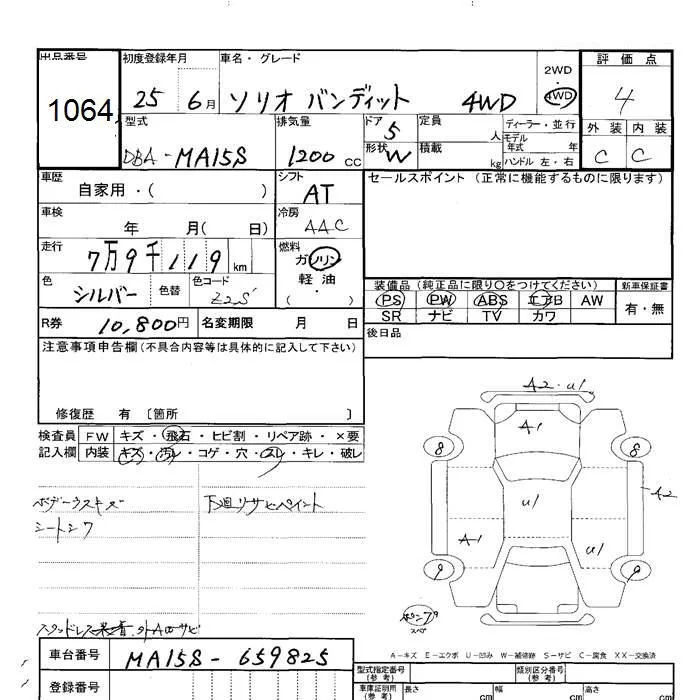 出品番号 初度登録年月 車名・グレード 2WD 評価点
1064 25 6月 ソリオ バンディット 4WD 4WD 4
型式 排気量 ドア 5 定員 人 ディーラー・並行 外装 内装
DBA - MA15S 1200 cc 形状 W 積載 kg モデル年式 年 ハンドル 左・右 C C
車歴 自家用・( ) シフト AT セールスポイント (正常に機能するものに限ります)
車検 年 月( 日) 冷房 AAC
走行 7万9千119 km 燃料 ガソリン
軽・油
( )
色 シルバー 色替 色コード Z2S 装備品(純正品に限り○をつけてください) 新車保証書
PS PW ABS エアB AW 有・無
SR ナビ TV カワ
R券 10,800円 名変期限 月 日 後日品
注意事項申告欄(不具合内容等は具体的に記入して下さい)
修復歴 有 〔箇所 〕
検査員 FW キズ・飛石・ヒビ割・リペア跡・×要
記入欄 内装 キズ・汚レ・コゲ・穴・スレ・キレ・破レ
ボデーウスキズ 下廻リサビペイント
シートシワ
A2・U1
A1
8 8
A2
U1
A1 U1
9 9
スペ
A-キズ E-エクボ U-凹み W-補修跡 S-サビ C-腐食 XX-交換済
車台番号 MA15S - 659825 型式指定番号(参考) 類別区分番号(参考)
登録番号 車庫証明用(参考) 長さ cm 幅 cm 高さ cm